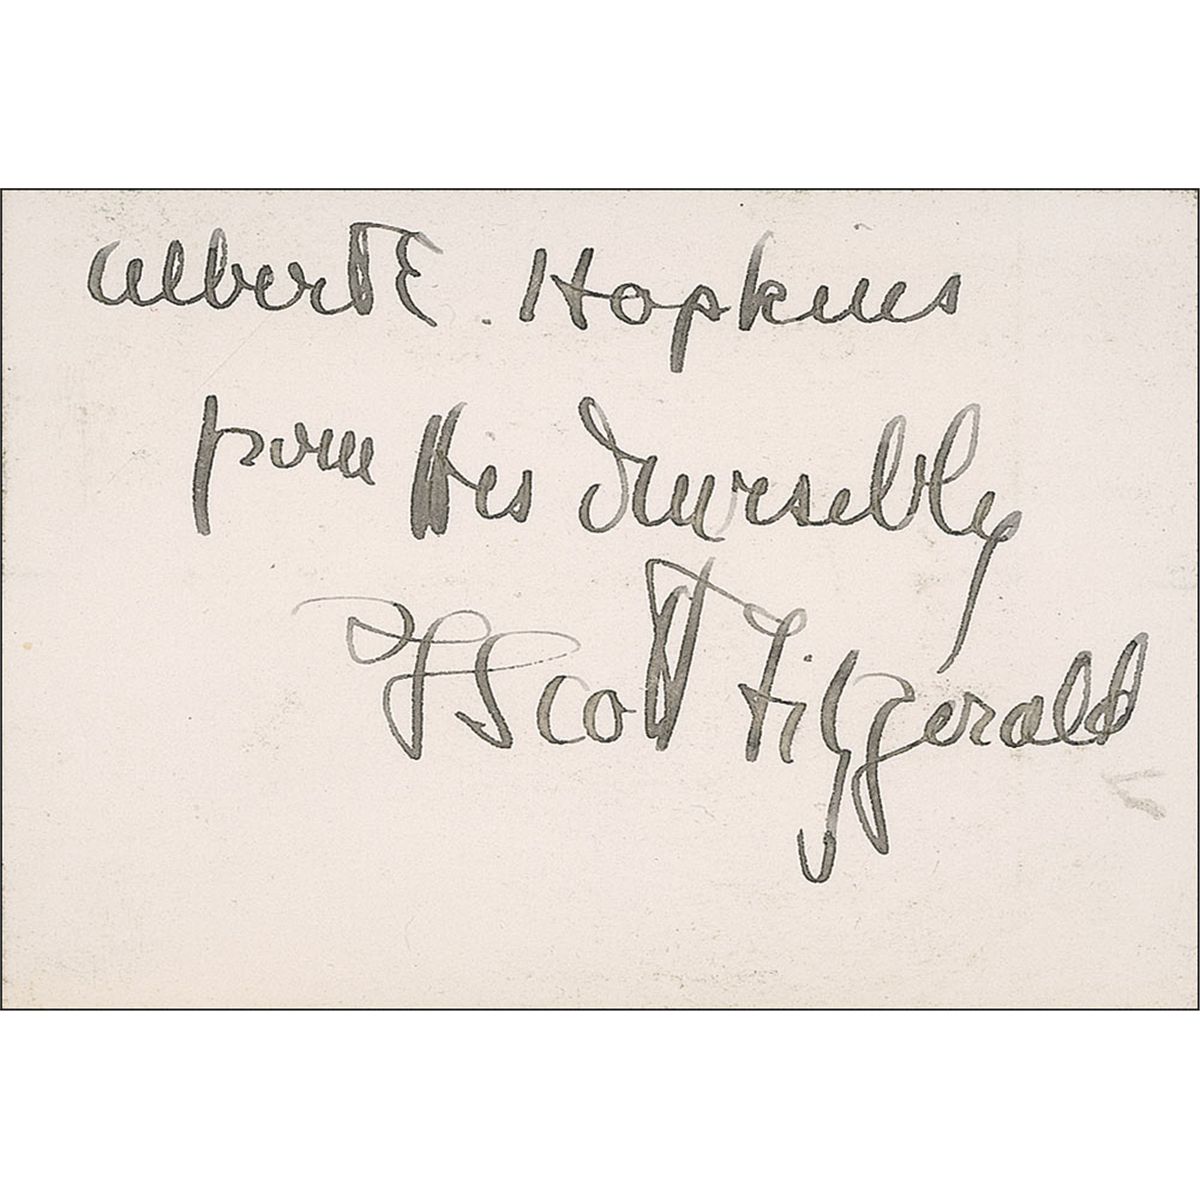 Albert E. Hopkins
from His
F Scott Fitzgerald